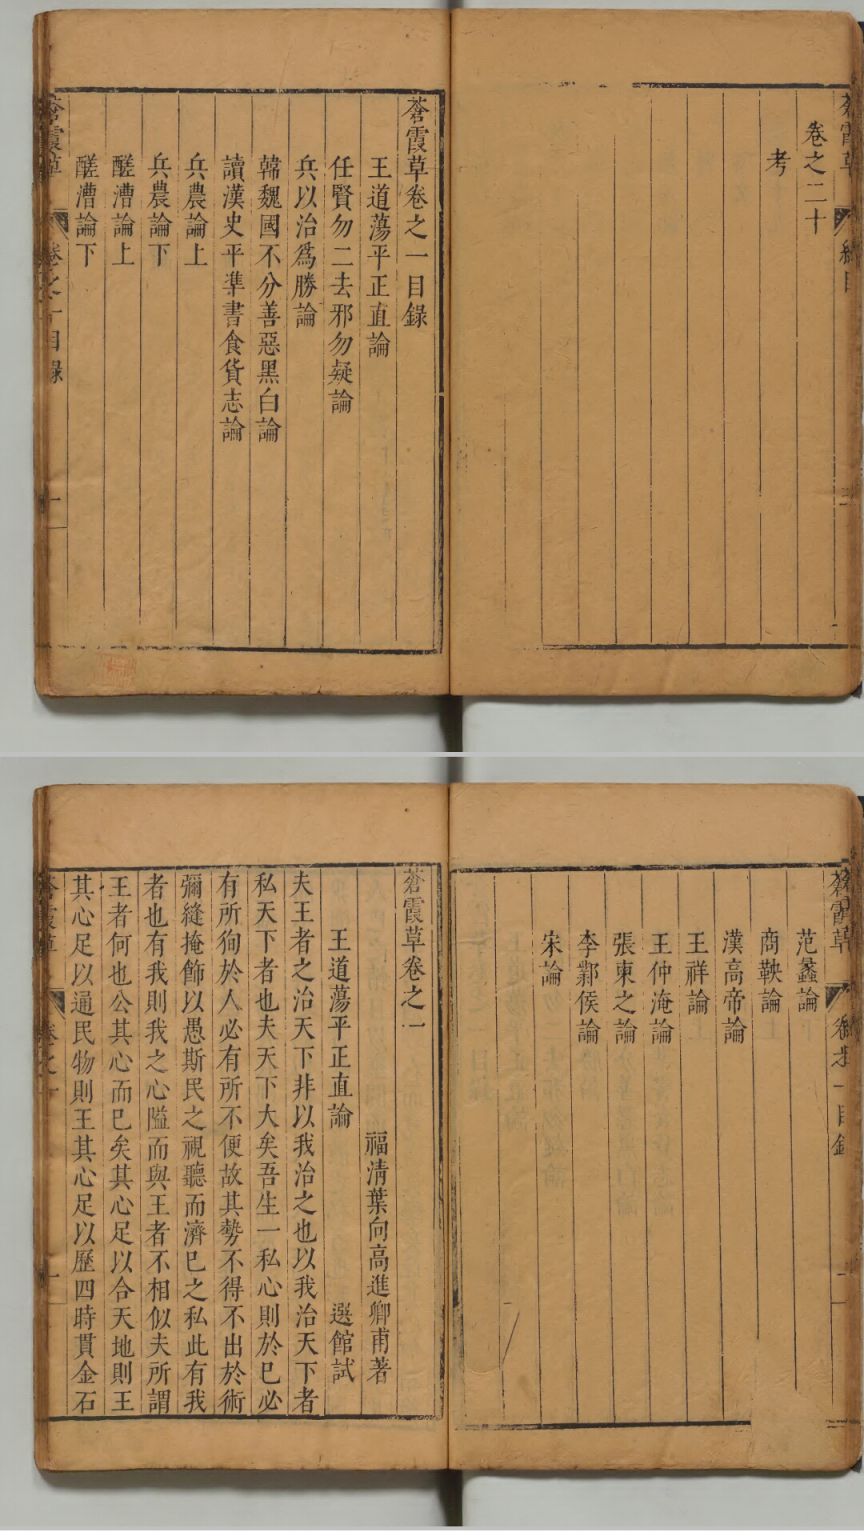 蒼霞草 總目
卷之二十
考
蒼霞草卷之一目錄
王道蕩平正直論
任賢勿二去邪勿疑論
兵以治爲勝論
韓魏國不分善惡黑白論
讀漢史平準書食貨志論
兵農論上
兵農論下
醝漕論上
醝漕論下
蒼霞草 卷之一目錄 一
蒼霞草 卷之一目錄
范蠡論
商鞅論
漢高帝論
王祥論
王仲淹論
張柬之論
李鄴侯論
宋論
蒼霞草卷之一
福清葉向高進卿甫著
王道蕩平正直論 選館試
夫王者之治天下非以我治之也以我治天下者
私天下者也夫天下大矣吾生一私心則於已必
有所狥於人必有所不便故其勢不得不出於術
彌縫掩飾以愚斯民之視聽而濟已之私此有我
者也有我則我之心隘而與王者不相似夫所謂
王者何也公其心而已矣其心足以合天地則王
其心足以通民物則王其心足以歷四時貫金石
蒼霞草 卷之一 一